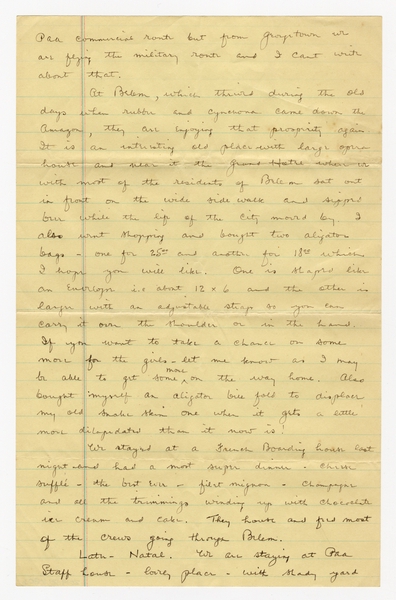 Paa commercial route but from Georgetown we
are flying the military route and I can't write
about that.
At Belem, which thrived during the old
days when rubber and cynchona came down the
Amazon, they are enjoying that prosperity again.
It is an interesting old place with large opera
house and near it the Grand Hotel where we
with most of the residents of Belem sat out
in front on the wide side walk and sipped
beer while the life of the City moved by. I
also went shopping and bought two aligator
bags - one for 25⁰⁰ and another for 18⁰⁰ which
I hope you will like. One is shaped like
an Envelope is about 12 x 6 and the other is
larger with an adjustable strap so you can
carry it over the shoulder or in the hand.
If you want to take a chance on some
more for the girls - let me know as I may
be able to get some more on the way home. Also
bought myself an aligator bill fold to displace
my old snake skin one when it gets a little
more dilapidated than it now is!
We stayed at a French Boarding house last
night and had a most super dinner - cheese
suffle - the best ever - filet mignon - champagne
and all the trimmings winding up with chocolate
ice cream and cake. They house and feed most
of the crews going through Belem.
Later - Natal. We are staying at Paa
Staff house - lovely place - with shady yard